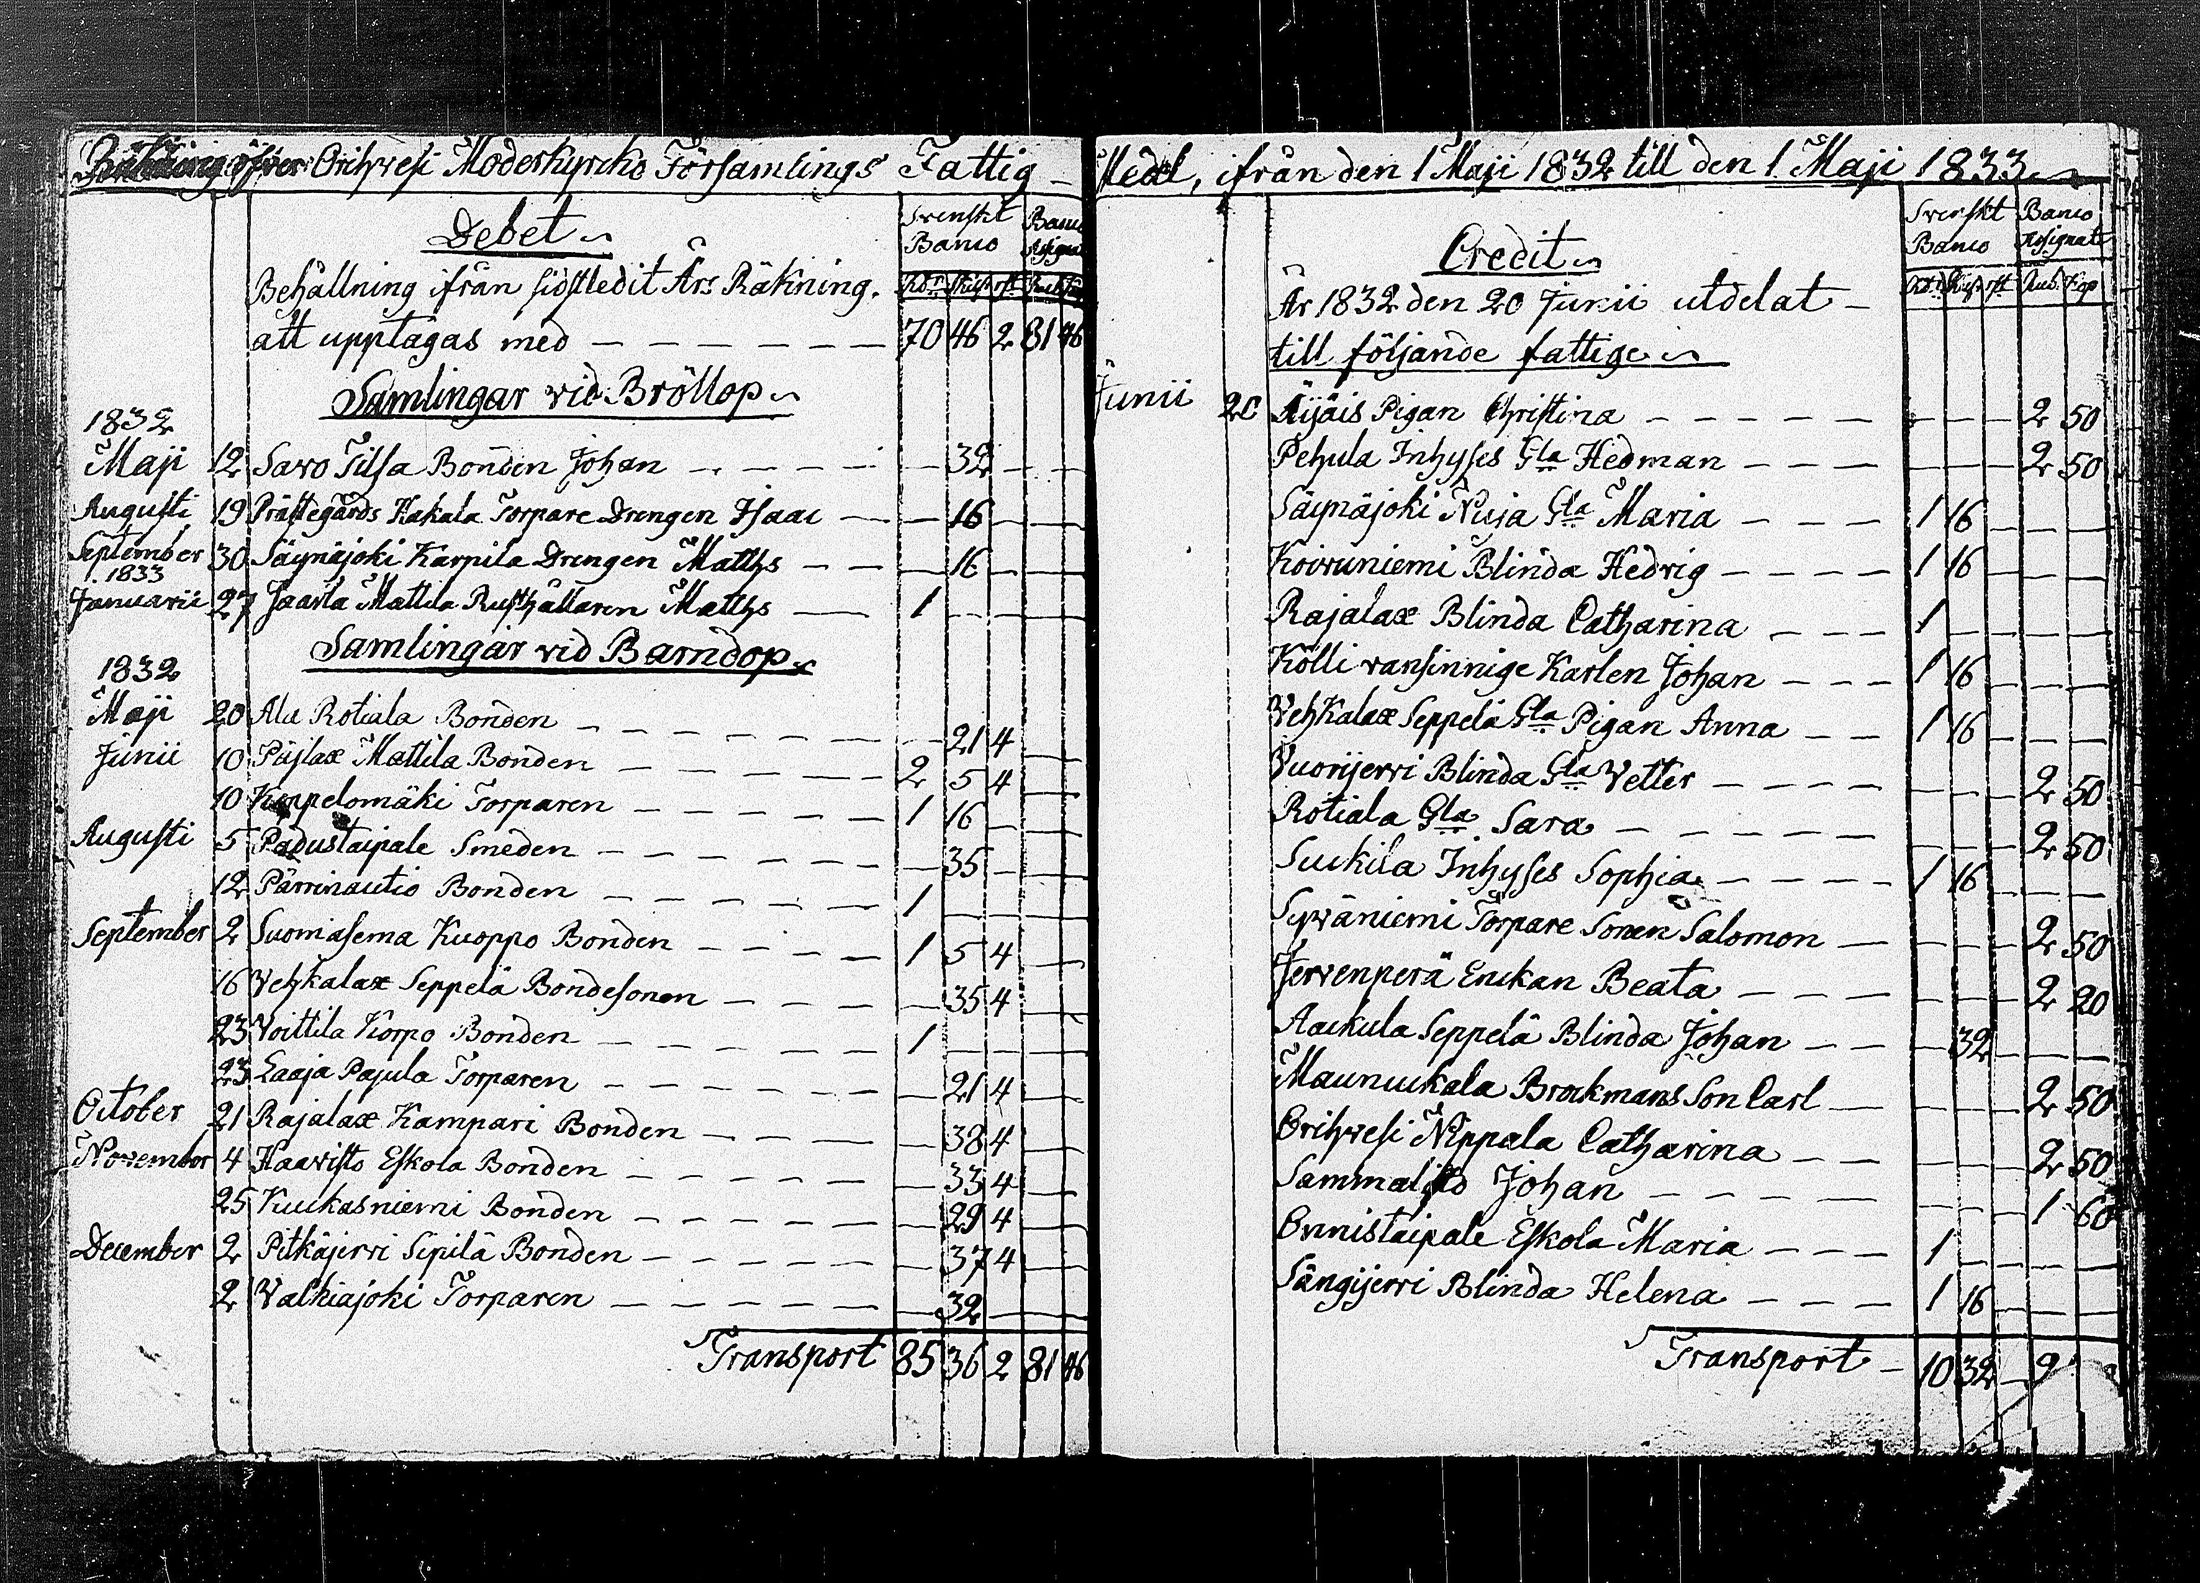 Räkning öfver Orihvesi Moderkyrcko Församlings Fattig-Medel, ifrån den 1 Maji 1832 till den 1 Maji 1833.
Debet
Svenskt Banco Banco Assignat
Rdr Skil rst Rub Kop
Behållning ifrån sidstledit Års Räkning.
att upptagas med — 70 46 2 81 46
Samlingar vid Bröllop
1832
Maji 12 Savo Tilsa Bonden Johan — 32
Augusti 19 Prästegårds Kakala Torpare Drengen Isaac — 16
September 30 Säynäjoki Karpila Drengen Matths — 16
1833
Januarii 27 Jaarla Mattila Rusthållaren Matths — 1
Samlingar vid Barndop
1832
Maji 20 Alu Rotiala Bonden — 21 4
Junii 10 Päjlax Mattila Bonden — 2 5 4
10 Koppelomäki Torparen — 1 16
Augusti 5 Padustaipale Smeden — 35
12 Pärrinautio Bonden — 1
September 2 Suomasema Kuoppo Bonden — 1 5 4
16 Vehkalax Seppelä Bondesonen — 35 4
23 Voittila Korpo Bonden — 1
23 Laaja Pajula Torparen — 21 4
October 21 Rajalax Kampari Bonden — 38 4
November 4 Haavisto Eskola Bonden — 33 4
25 Kuckasniemi Bonden — 29 4
December 2 Pitkäjervi Sipilä Bonden — 37 4
2 Valkiajoki Torparen — 32
Transport 85 36 2 81 46
Credit
Svenskt Banco Banco Assignat
Rdr Skil rst Rub. Kop
År 1832 den 20 Junii utdelat
till följande fattige
Junii 20 Äijäis Pigan Christina — 2 50
Pehula Inhyses Gla Hedman — 2 50
Säynäjoki Nuja Gla Maria — 1 16
Koivuniemi Blinda Hedvig — 1 16
Rajalax Blinda Catharina — 1
Kölli vansinnige Karlen Johan — 1 16
Vehkalax Seppelä Gla Pigan Anna — 1 16
Vuorijervi Blinda Gla Vetter — 2 50
Rotiala Gla Sara — 2 50
Suckila Inhyses Sophia — 1 16
Syväniemi Torpare Sonen Salomon — 2 50
Jervenperä Enckan Beata — 2 20
Aackula Seppelä Blinda Johan — 32
Maunuckala Brockmans Son Carl — 2 50
Orihvesi Nippala Catharina — 2 50
Sammalisto Johan — 1 60
Onnistaipale Eskola Maria — 1
Längijervi Blinda Helena — 1 16
Transport — 10 32